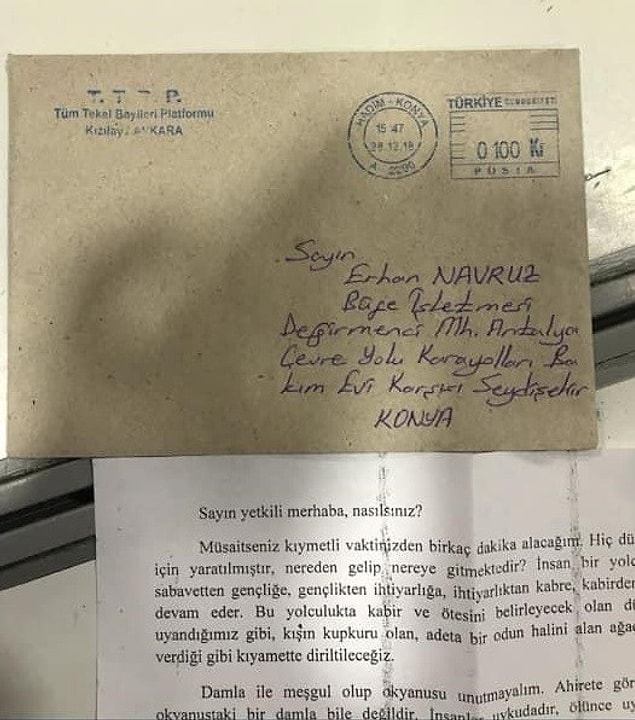 T. T P.
Tüm Tekel Bayileri Platformu
Kızılay ANKARA
HADIM - KONYA
15 47
28 12 18
A 2290
TÜRKİYE CUMHURİYETİ
0 100 Kr
POSTA
Sayın
Erhan NAVRUZ
Büfe İşletmesi
Değirmenci Mh. Antalya
Çevre Yolu Karayolları Ba
kım Evi Karşısı Seydişehir
KONYA
Sayın yetkili merhaba, nasılsınız?
Müsaitseniz kıymetli vaktinizden birkaç dakika alacağım. Hiç dü
için yaratılmıştır, nereden gelip nereye gitmektedir? İnsan bir yolc
sabavetten gençliğe, gençlikten ihtiyarlığa, ihtiyarlıktan kabre, kabirden
devam eder. Bu yolculukta kabir ve ötesini belirleyecek olan di
uyandığımız gibi, kışın kupkuru olan, adeta bir odun halini alan ağaç
verdiği gibi kıyamette diriltileceğiz.
Damla ile meşgul olup okyanusu unutmayalım. Ahirete gör
okyanustaki bir damla bile değildir. İnsanlar uykudadır, ölünce uy